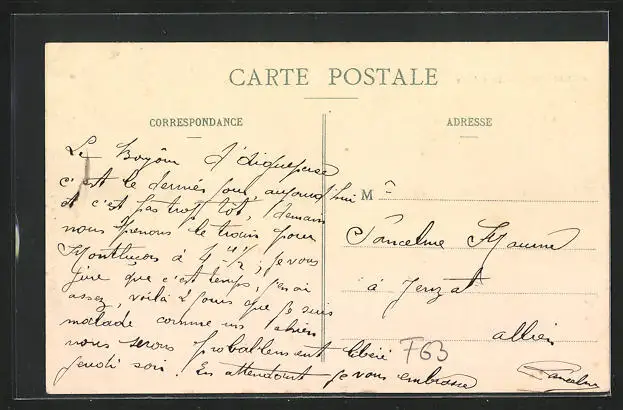 CARTE POSTALE
CORRESPONDANCE
ADRESSE
Le d'Aigueperse
c'est le dernier jour aujourd'hui
et c'est pas trop tôt, demain
nous prenons le train pour
Montluçon à 4 h ½, je vous
jure que c'est temps, j'en ai
assez, voilà 2 jours que je suis
malade comme un chien
nous serons probablement libéré
jeudi soir. En attendant je vous embrasse
M
à Jenzat
allier
F63